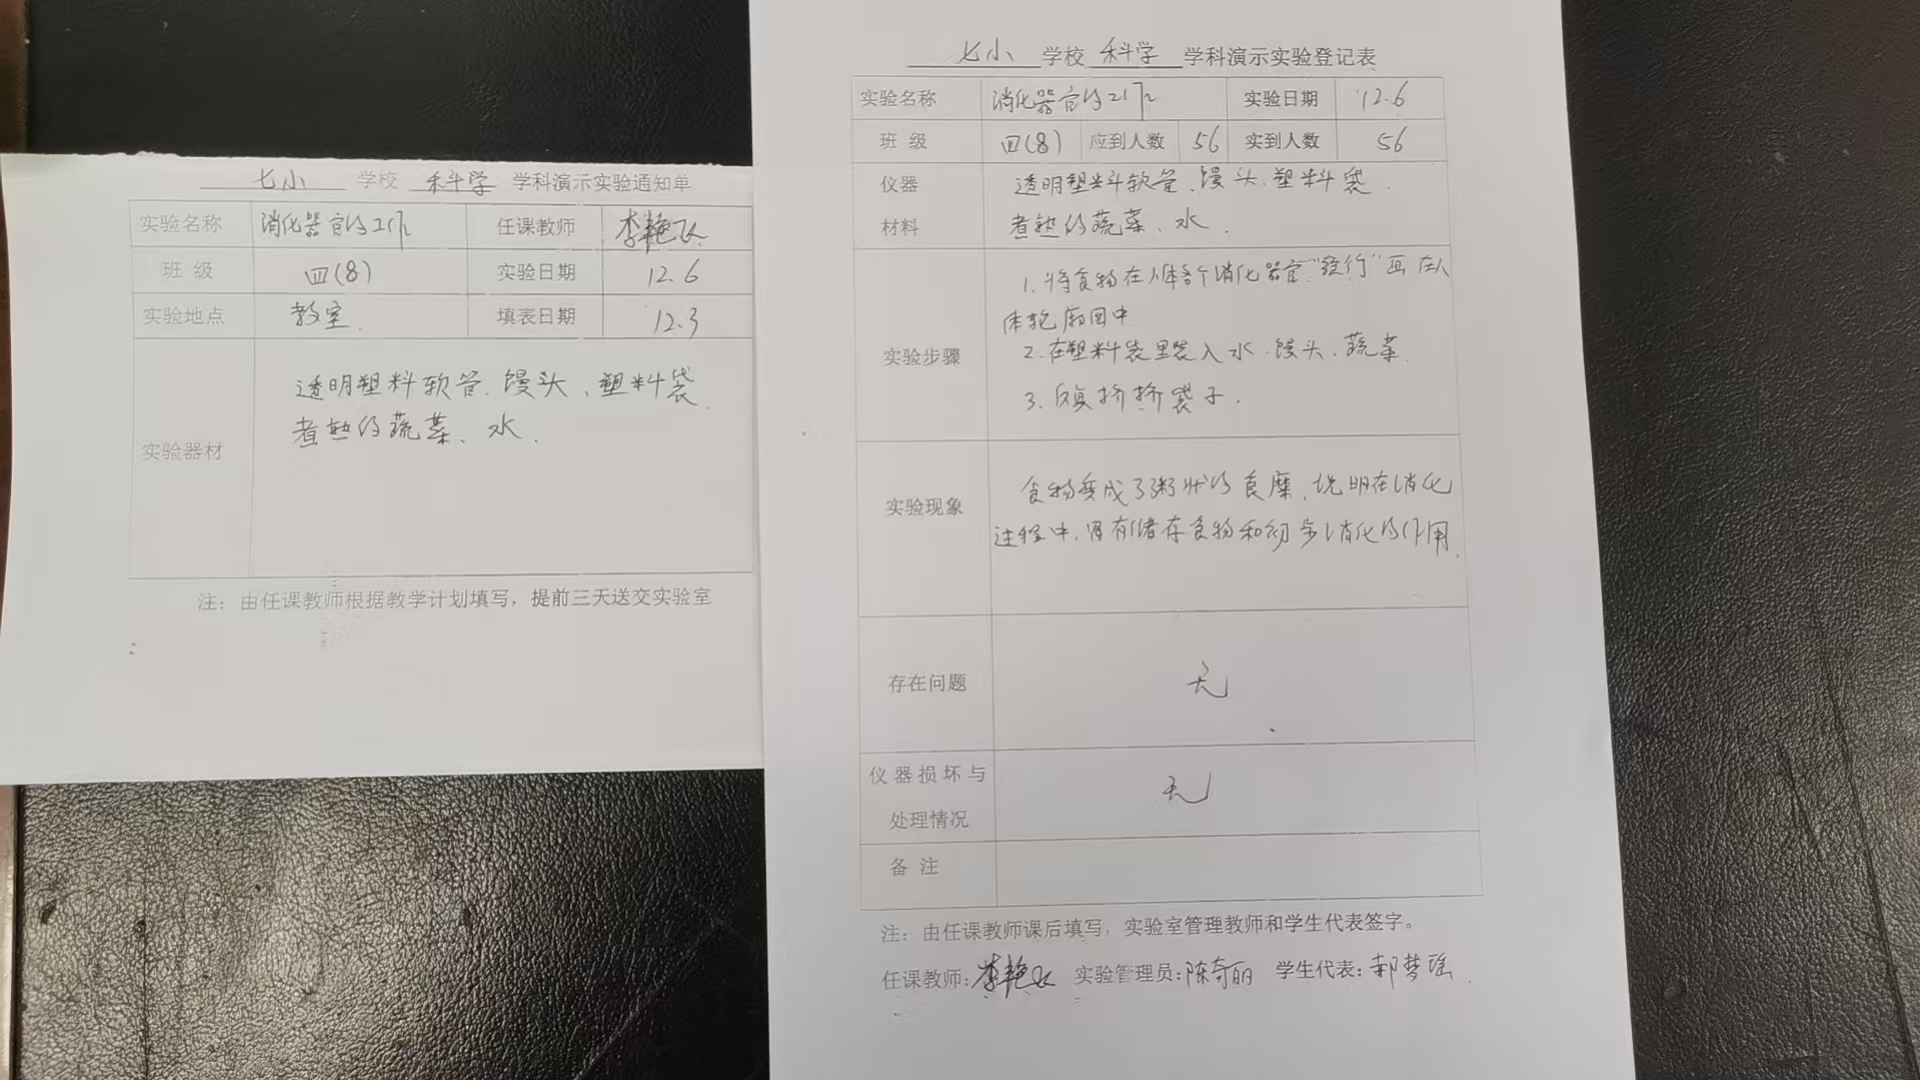 七小 学校 科学 学科演示实验通知单
实验名称 消化器官的工作 任课教师 李艳飞
班 级 四(8) 实验日期 12.6
实验地点 教室. 填表日期 12.3
实验器材
透明塑料软管、馒头、塑料袋.
煮熟的蔬菜、水.
注：由任课教师根据教学计划填写，提前三天送交实验室
七小 学校 科学 学科演示实验登记表
实验名称 消化器官的工作 实验日期 12.6
班 级 四(8) 应到人数 56 实到人数 56
仪器 透明塑料软管、馒头、塑料袋.
材料 煮熟的蔬菜、水.
实验步骤
1.将食物在人体各个消化器官"旅行"画在人
体轮廓图中
2.在塑料袋里装入水、馒头、蔬菜.
3.反复挤挤袋子.
实验现象
食物变成了粥状的食糜,说明在消化
过程中,胃有储存食物和初步消化的作用.
存在问题 无
仪器损坏与 无
处理情况
备 注
注：由任课教师课后填写，实验室管理教师和学生代表签字。
任课教师:李艳飞 实验管理员:陈奇丽 学生代表:郝梦瑶.